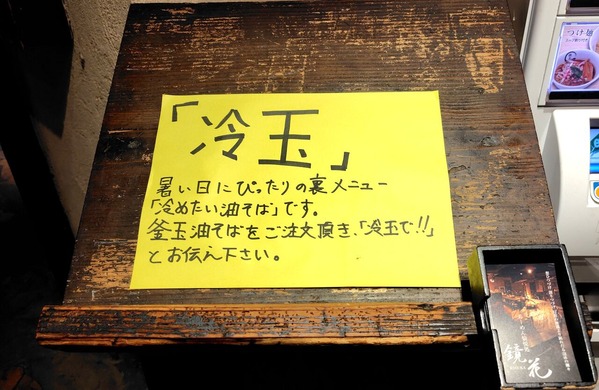 「冷玉」
暑い日にぴったりの裏メニュー
「冷めたい油そば」です。
釜玉油そばをご注文頂き、「冷玉で!!」
とお伝え下さい。
つけ麺
鏡花